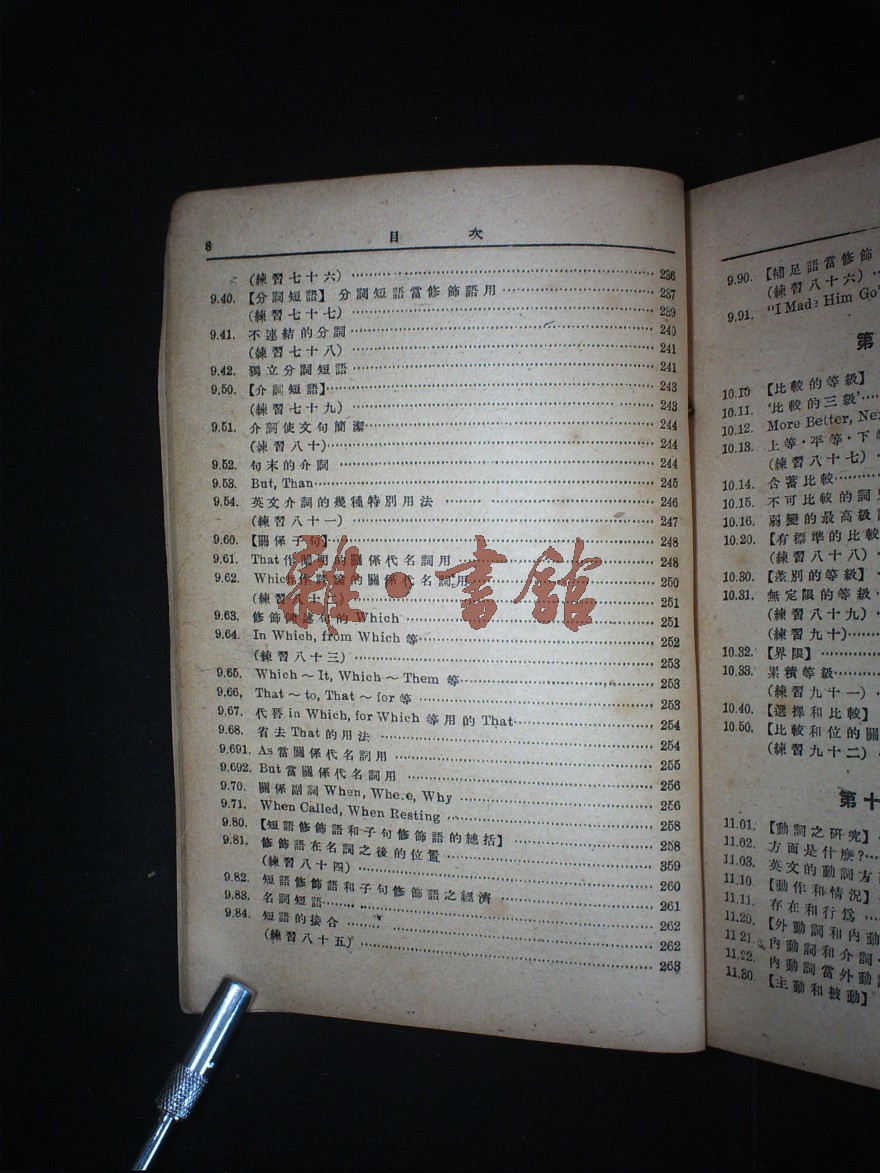 8 目 次
(練習七十六) 236
9.40. 【分詞短語】 分詞短語當修飾語用 237
(練習七十七) 239
9.41. 不連結的分詞 240
(練習七十八) 241
9.42. 獨立分詞短語 241
9.50. 【介詞短語】 243
(練習七十九) 243
9.51. 介詞使文句簡潔 244
(練習八十) 244
9.52. 句末的介詞 244
9.53. But, Than 245
9.54. 英文介詞的幾種特別用法 246
(練習八十一) 247
9.60. 【關係子句】 248
9.61. That作闡明的關係代名詞用 248
9.62. Which作評論的關係代名詞用 250
(練習八十二) 251
9.63. 修飾陳述句的 Which 251
9.64. In Which, from Which 等 252
(練習八十三) 253
9.65. Which～It, Which～Them 等 253
9.66, That～to, That～for 等 253
9.67. 代替 in Which, for Which 等用的 That 254
9.68. 省去 That 的用法 254
9.691. As當關係代名詞用 255
9.692. But當關係代名詞用 256
9.70. 關係副詞 When, Whe.e, Why 256
9.71. When Called, When Resting 258
9.80. 【短語修飾語和子句修飾語的總括】 258
9.81. 修飾語在名詞之後的位置 359
(練習八十四) 260
9.82. 短語修飾語和子句修飾語之經濟 261
9.83. 名詞短語 262
9.84. 短語的接合 262
(練習八十五) 263
9.90. 【補足語當修飾
(練習八十六)
9.91. "I Made Him Go"
第
10.10 【比較的等級】
10.11. '比較的三級'
10.12. More Better, Ne
10.13. 上等·平等·下
(練習八十七)
10.14. 含蓄比較
10.15. 不可比較的詞
10.16. 弱變的最高級
10.20. 【有標準的比較
(練習八十八)
10.30. 【差別的等級】
10.31. 無定限的等級
(練習八十九)
(練習九十)
10.32. 【界限】
10.33. 累積等級
(練習九十一)
10.40. 【選擇和比較】
10.50. 【比較和位的關
(練習九十二)
第十
11.01. 【動詞之研究】
11.02. 方面是什麼?
11.03. 英文的動詞方
11.10 【動作和情況】
11.11. 存在和行爲
11.20. 【外動詞和內動
11 21. 內動詞和介詞
11.22. 內動詞當外動
11.30. 【主動和被動】
雜·書館